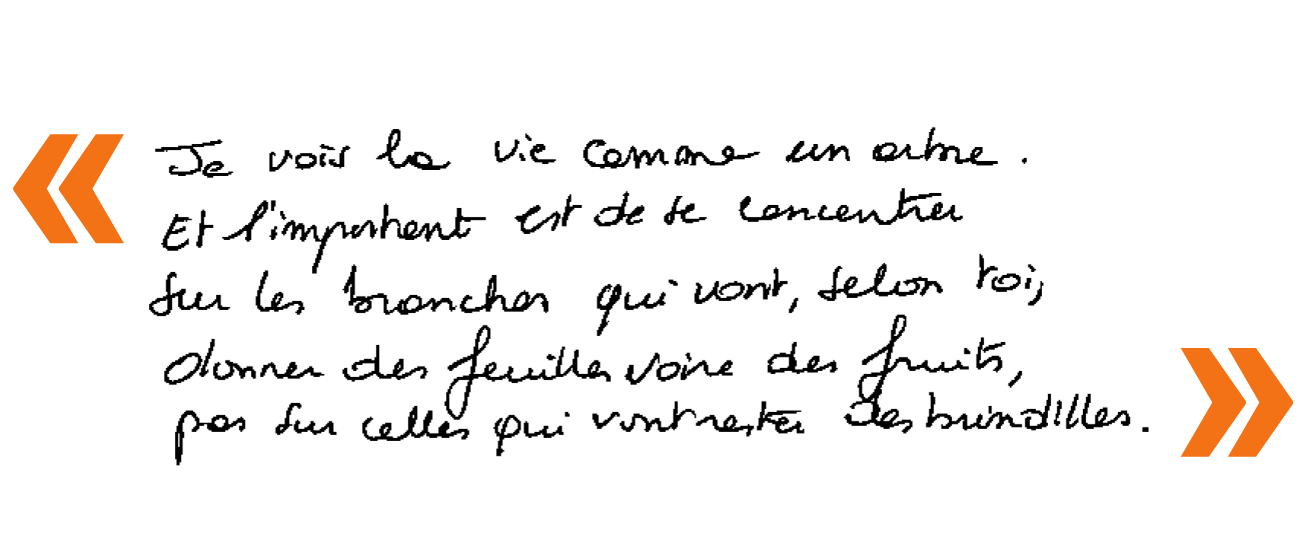 Je vois la vie comme un arbre.
Et l'important est de se concentrer
sur les branches qui vont, selon toi,
donner des feuilles voire des fruits,
pas sur celles qui vont rester des brindilles.